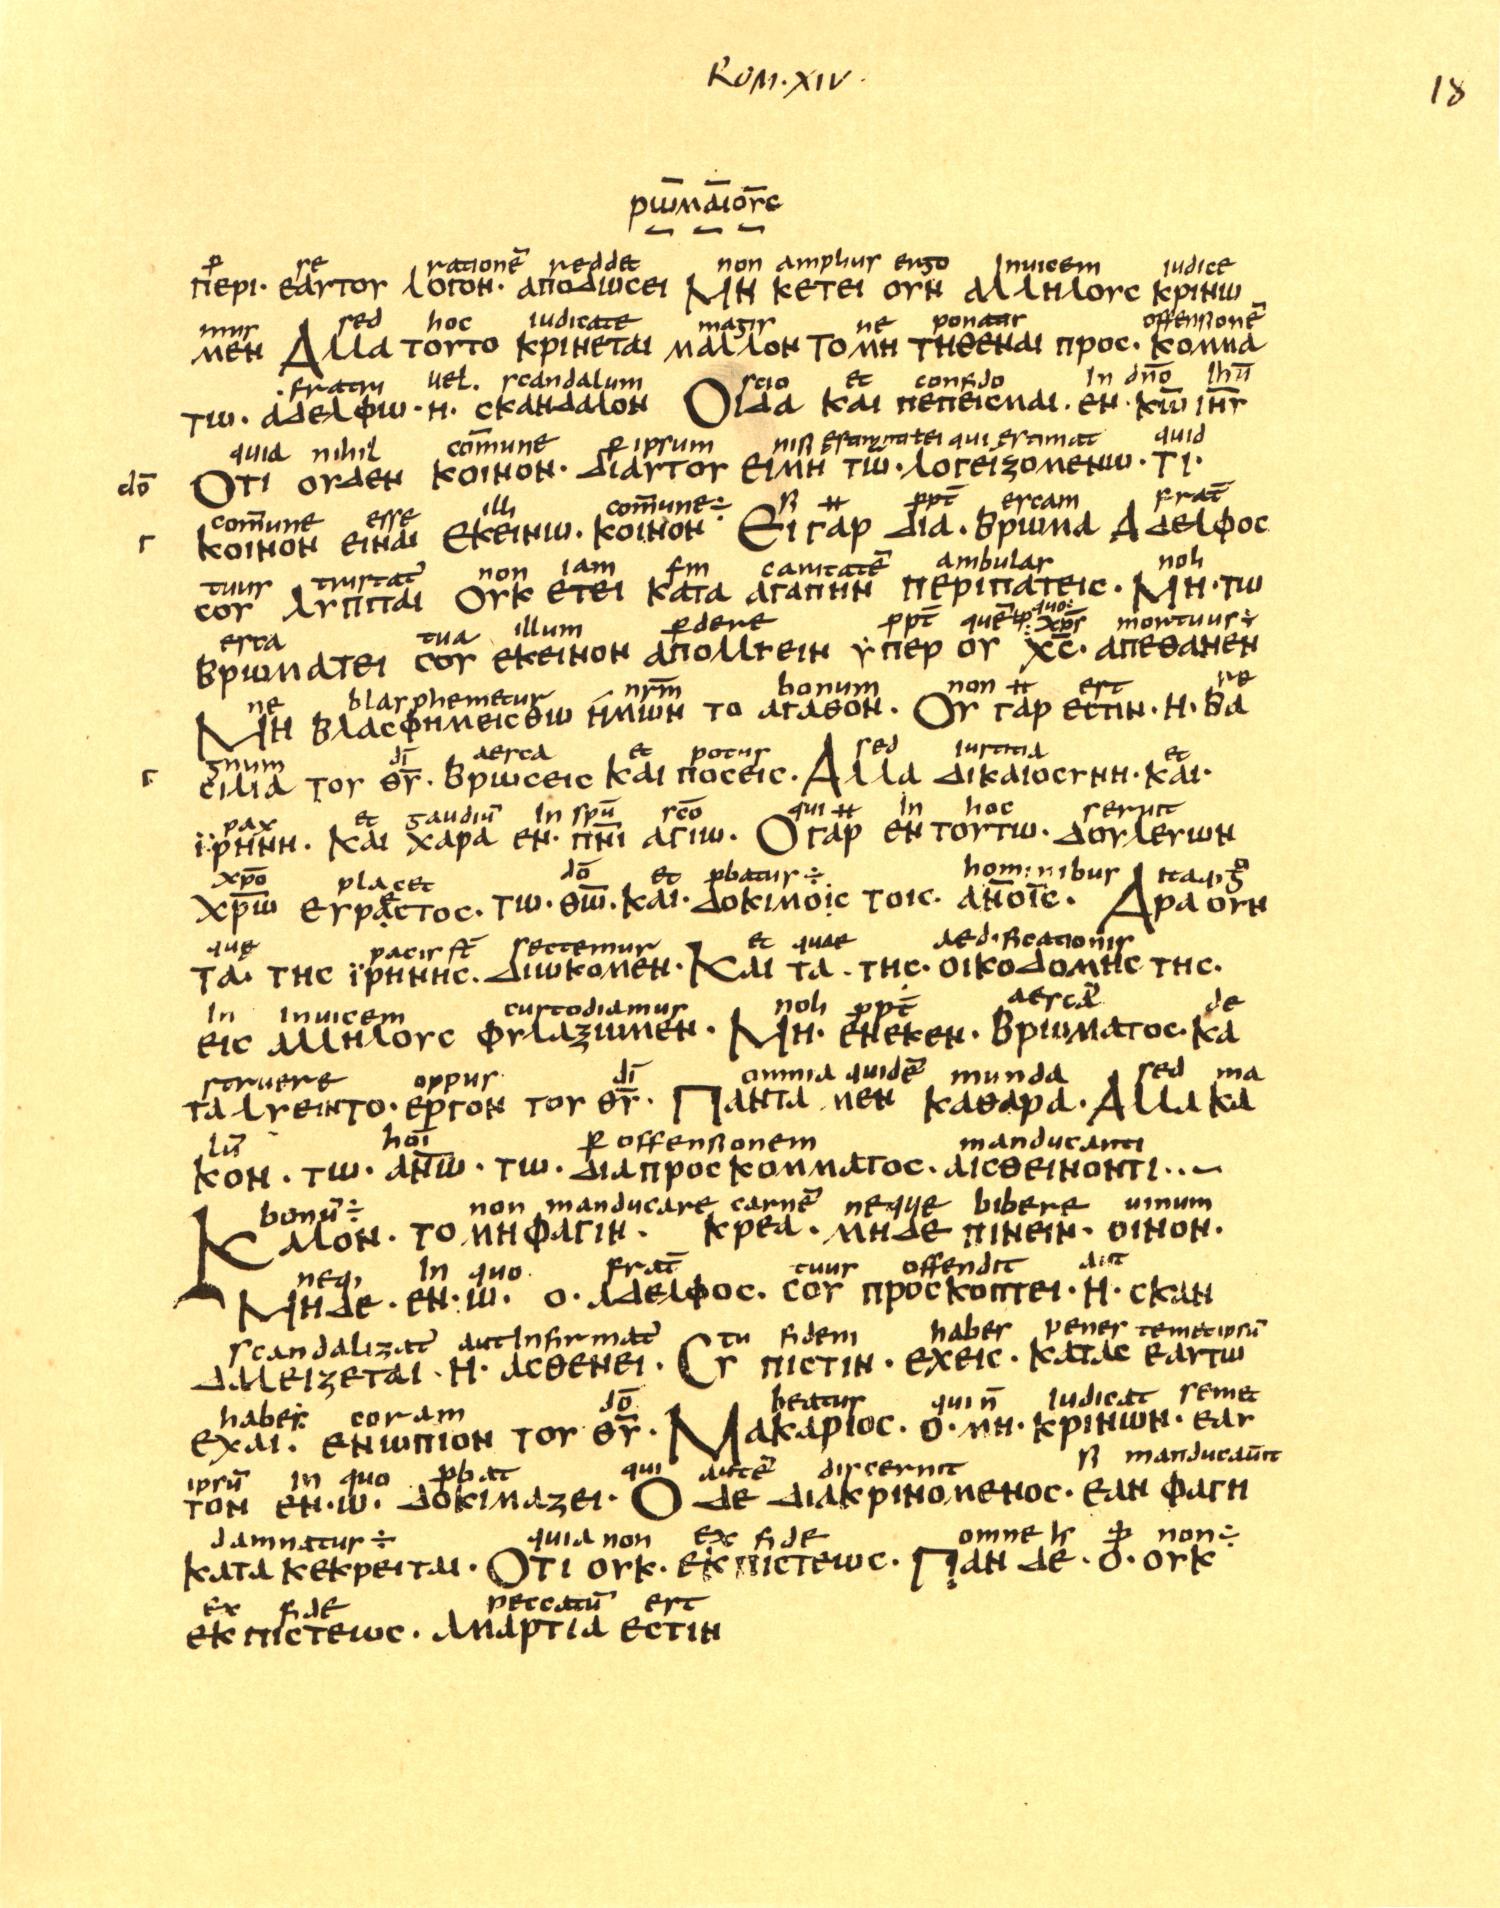 ROM·XIV·
18
ρω̅μα̅ιου̅ς
ꝑ se rationē reddet non amplius ergo Inuicem iudice
περι· εαυτου λογον· αποδωσει Μη κετει ουν αλληλους κρινω
mus sed hoc iudicate magis ne ponatur offensionē
μεν Αλλα τουτο κρινεται μαλλον Τομη τηθεναι προς· κομμα
fratri uel. scandalum scio et confido In dn̄o ihū
τω· αδελφω· η· σκανδαλον Οιδα και πεπεισμαι· εν· κω̅ ιηυ̅
quia nihil com̄une ꝑ ipsum nisi qui estimat quid
dō Οτι ουδεν κοινον· διαυτου ειμη τω· λογειζομενω· τι·
com̄une esse illi com̄une÷ si ǂ ꝓpt̄ escam frat̄
Γ κοινον ειναι εκεινω· κοινον Ει γαρ δια· βρωμα Αδελφος
tuus tristat̄ non iam sm caritatē ambulas noli
σου λυπιται Ουκ ετει κατα αγαπην περιπατεις· Μη· τω
esca tua illum ꝑdere ꝓpt̄ quē xp̄s mortuus÷
βρωματει σου εκεινον απολλυειν υπερ ου χ̅ς̅· απεθανεν
ne blasphemetur nr̄m bonum non ǂ est re
Μη βλασφημεισθω ημων το αγαθον· Ου γαρ εστιν· η· βα
gnum dī aesca et potus sed iustitia et
Γ σιλια του θυ̅· βρωσεις και ποσεις· Αλλα δικαιοσυνη· και·
pax et gaudiū In spū scō qui ǂ In hoc seruit
ϊρηνη· και χαρα εν· πνι̅ αγιω· Ο γαρ εν τουτω· δουλευων
xp̄o placet dō et ꝓbatus÷ hominibus
χρω̅ ευραστος· τω· θω̅· και· δοκιμοις τοις· αν̅οις̅· Αρα ουν
que pacis st̄ sectemur et quae aedificationis
τα· της ϊρηνης· διωκομεν· Και τα· της· οικοδομης της·
In inuicem custodiamus noli ꝓpt̄ aescā de
εις αλληλους φυλαξωμεν· Μη· ενεκεν· βρωματος· κα
struere oppus dī omnia quidē munda sed ma
τα λυειντο· εργον του θυ̅· Παντα μεν καθαρα· Αλλα κα
lū hoī ꝑ offensionem manducanti
κον· τω· ανω̅· τω· διαπροσκομματος· αισθεινοντι··
bonū÷ non manducare carnē neque bibere uinum
Καλον· το μη φαγιν· κρεα· μηδε πινειν· οινον·
neq; In quo frat̄ tuus offendit aut
Μηδε· εν· ω· ο· αδελφος· σου προσκοπτει· η· σκαν
scandalizat̄ aut Infirmat̄ tu fidem habes penes temetipsū
δαλειζεται· η· ασθενει· Συ πιστιν· εχεις· κατας εαυτω
habes coram dō beatus qui n̄ iudicat semet
εχαι· ενωπιον του θυ̅· Μακαριος· ο· μη· κρινων· εαυ
ipsū In quo ꝓbat qui autē discernit si manducau̅it
τον εν· ω· δοκιμαζει· Ο δε διακρινομενος· εαν φαγη
damnatus÷ quia non ex fide omne non÷
κατα κεκρειται· Οτι ουκ· εκ πιστεως· Παν δε· ο· ουκ
ex fide peccatū est
εκ πιστεως· αμαρτια εστιν